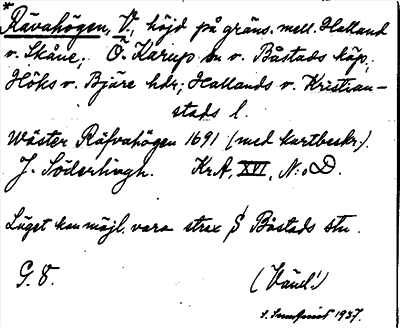 * Rävahögen, V., höjd på gräns. mell. Halland
o. Skåne; Ö. Karup sn o. Båstads köp.,
Höks o. Bjäre hdr; Hallands o. Kristian-
stads l.
Wäster Räfvahögen 1691 (med kartbeskr.).
J. Söderlingh. KrA, XVI, N:o D.
Läget kan möjl. vara strax S Båstads stn.
G. V. (Vänd!)
S. 1937.